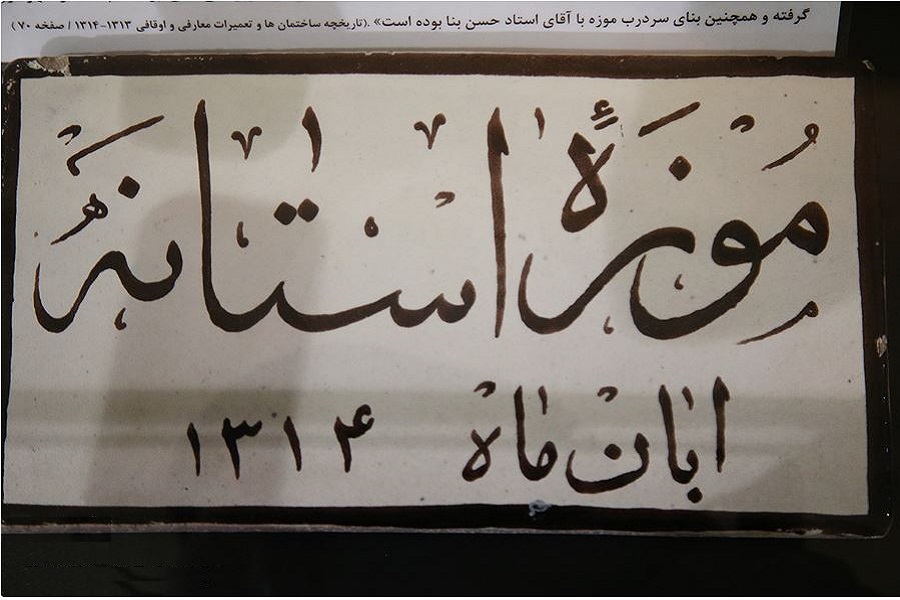 گرفته و همچنین بنای سردرب موزه با آقای استاد حسن بنا بوده است». (تاریخچه ساختمان ها و تعمیرات معارفی و اوقافی ۱۳۱۳-۱۳۱۴ / صفحه ۷۰)
مُوزهٔ استانهُ
ابان ماه ۱۳۱۴